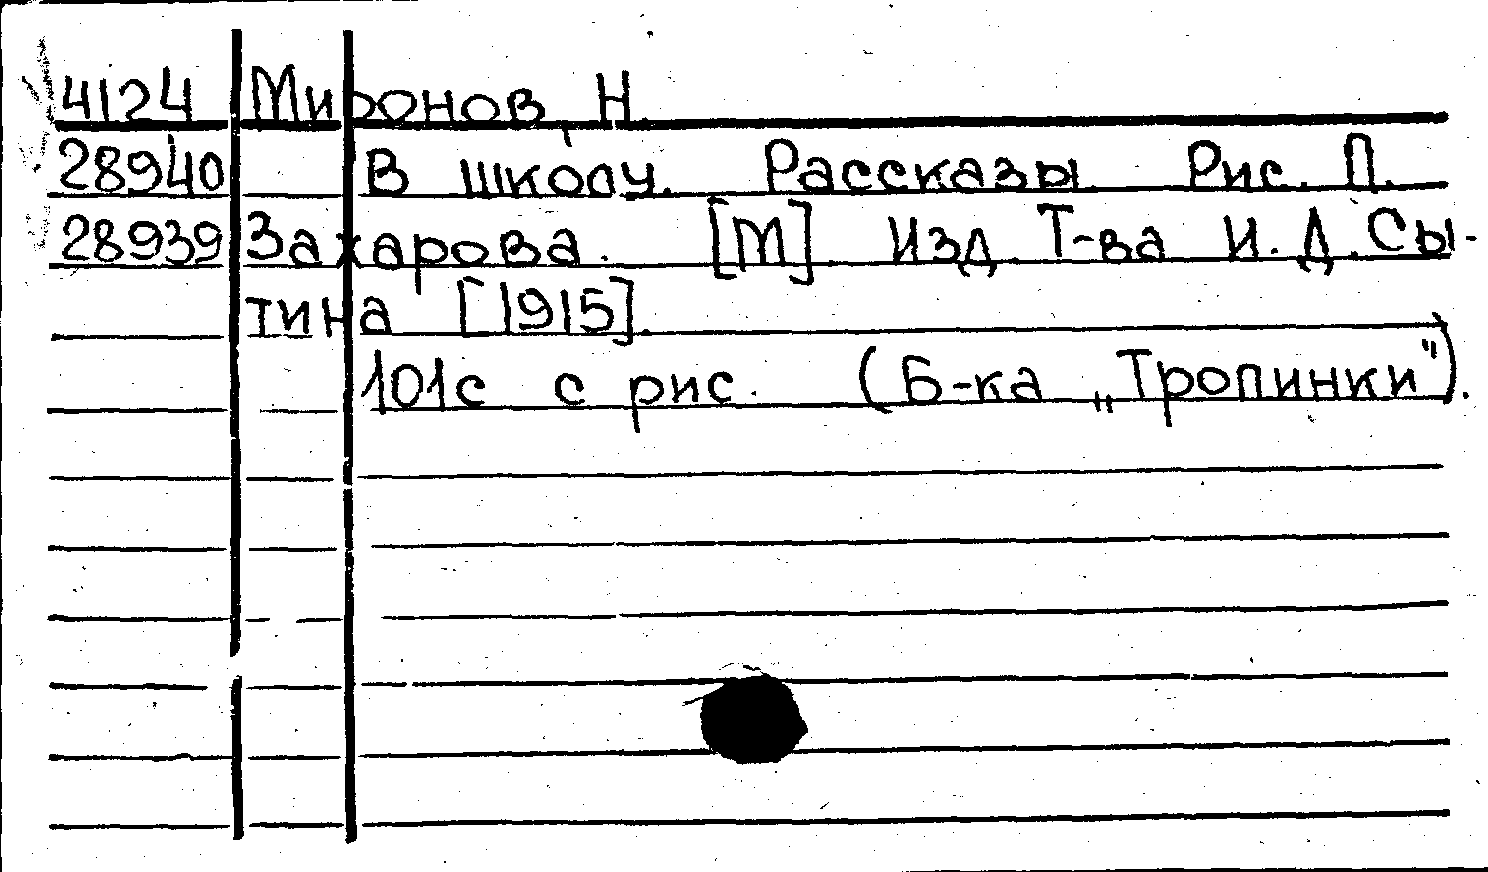 4124 Миронов, Н.
28940 В школу. Рассказы. Рис. П.
28939 Захарова. [М]. Изд. Т-ва И. Д. Сы-
тина [1915].
101с с рис. (Б-ка „Тропинки").